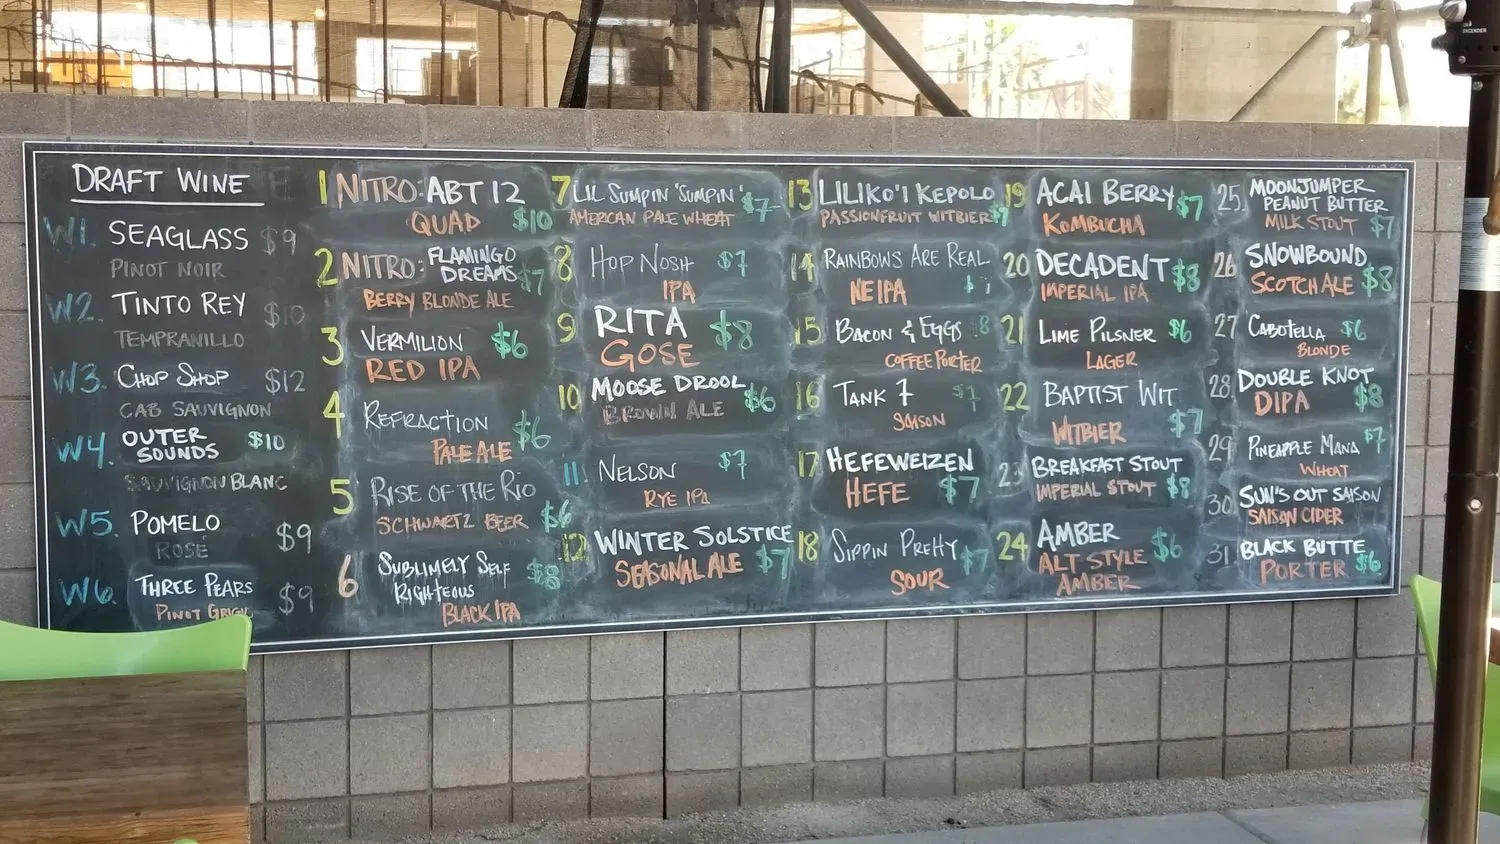 DRAFT WINE
W1. SEAGLASS $9
PINOT NOIR
W2. TINTO REY $10
TEMPRANILLO
W3. CHOP SHOP $12
CAB SAUVIGNON
W4. OUTER SOUNDS $10
SAUVIGNON BLANC
W5. POMELO $9
ROSÉ
W6. THREE PEARS $9
PINOT GRIGIO
1 NITRO: ABT 12
QUAD $10
2 NITRO: FLAMINGO
DREAMS $7
BERRY BLONDE ALE
3 VERMILION $6
RED IPA
4 REFRACTION $6
PALE ALE
5 RISE OF THE RIO
SCHWARTZ BEER $6
6 SUBLIMELY SELF
RIGHTEOUS $8
BLACK IPA
7 LIL SUMPIN 'SUMPIN' $7
AMERICAN PALE WHEAT
8 HOP NOSH $7
IPA
9 RITA $8
GOSE
10 MOOSE DROOL $6
BROWN ALE
11 NELSON $7
RYE IPA
12 WINTER SOLSTICE
SEASONAL ALE $7
13 LILIKO'I KEPOLO
PASSIONFRUIT WITBIER $7
14 RAINBOWS ARE REAL
NEIPA
15 BACON & EGGS 8
COFFEE PORTER
16 TANK 7 $7
SAISON
17 HEFEWEIZEN
HEFE $7
18 SIPPIN PRETTY $7
SOUR
19 ACAI BERRY $7
KOMBUCHA
20 DECADENT $8
IMPERIAL IPA
21 LIME PILSNER $6
LAGER
22 BAPTIST WIT
WITBIER $7
23 BREAKFAST STOUT
IMPERIAL STOUT $8
24 AMBER $6
ALT STYLE
AMBER
25. MOONJUMPER
PEANUT BUTTER
MILK STOUT $7
26 SNOWBOUND
SCOTCH ALE $8
27 CABOTELLA $6
BLONDE
28. DOUBLE KNOT
DIPA $8
29 PINEAPPLE MANA $7
WHEAT
30. SUN'S OUT SAISON
SAISON CIDER
31. BLACK BUTTE
PORTER $6